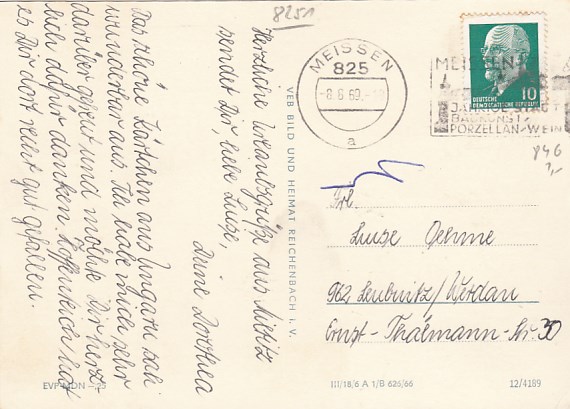 8251
MEISSEN
825
-8.6.69.-12
a
MEISSEN
JAHRIGE STADT
BAUKUNST
PORZELLAN-WEIN
10
DEUTSCHE
DEMOKRATISCHE REPUBLIK
846
?,-
VEB BILD UND HEIMAT REICHENBACH I. V.
Herzliche Urlaubsgrüße aus
sendet Dir, liebe Luise,
Deine Dorothea
Das schöne Kärtchen aus Ungarn sah
wunderbar aus. Ich habe mich sehr
darüber gefreut und möchte Dir herz-
lich dafür danken. Hoffentlich hat
es Dir dort recht gut gefallen.
Frl.
Luise Oehme
962 Leubnitz/Werdau
Ernst-Thälmann-Str. 30
EVP MDN -,25
III/18/6 A 1/B 625/66
12/4189